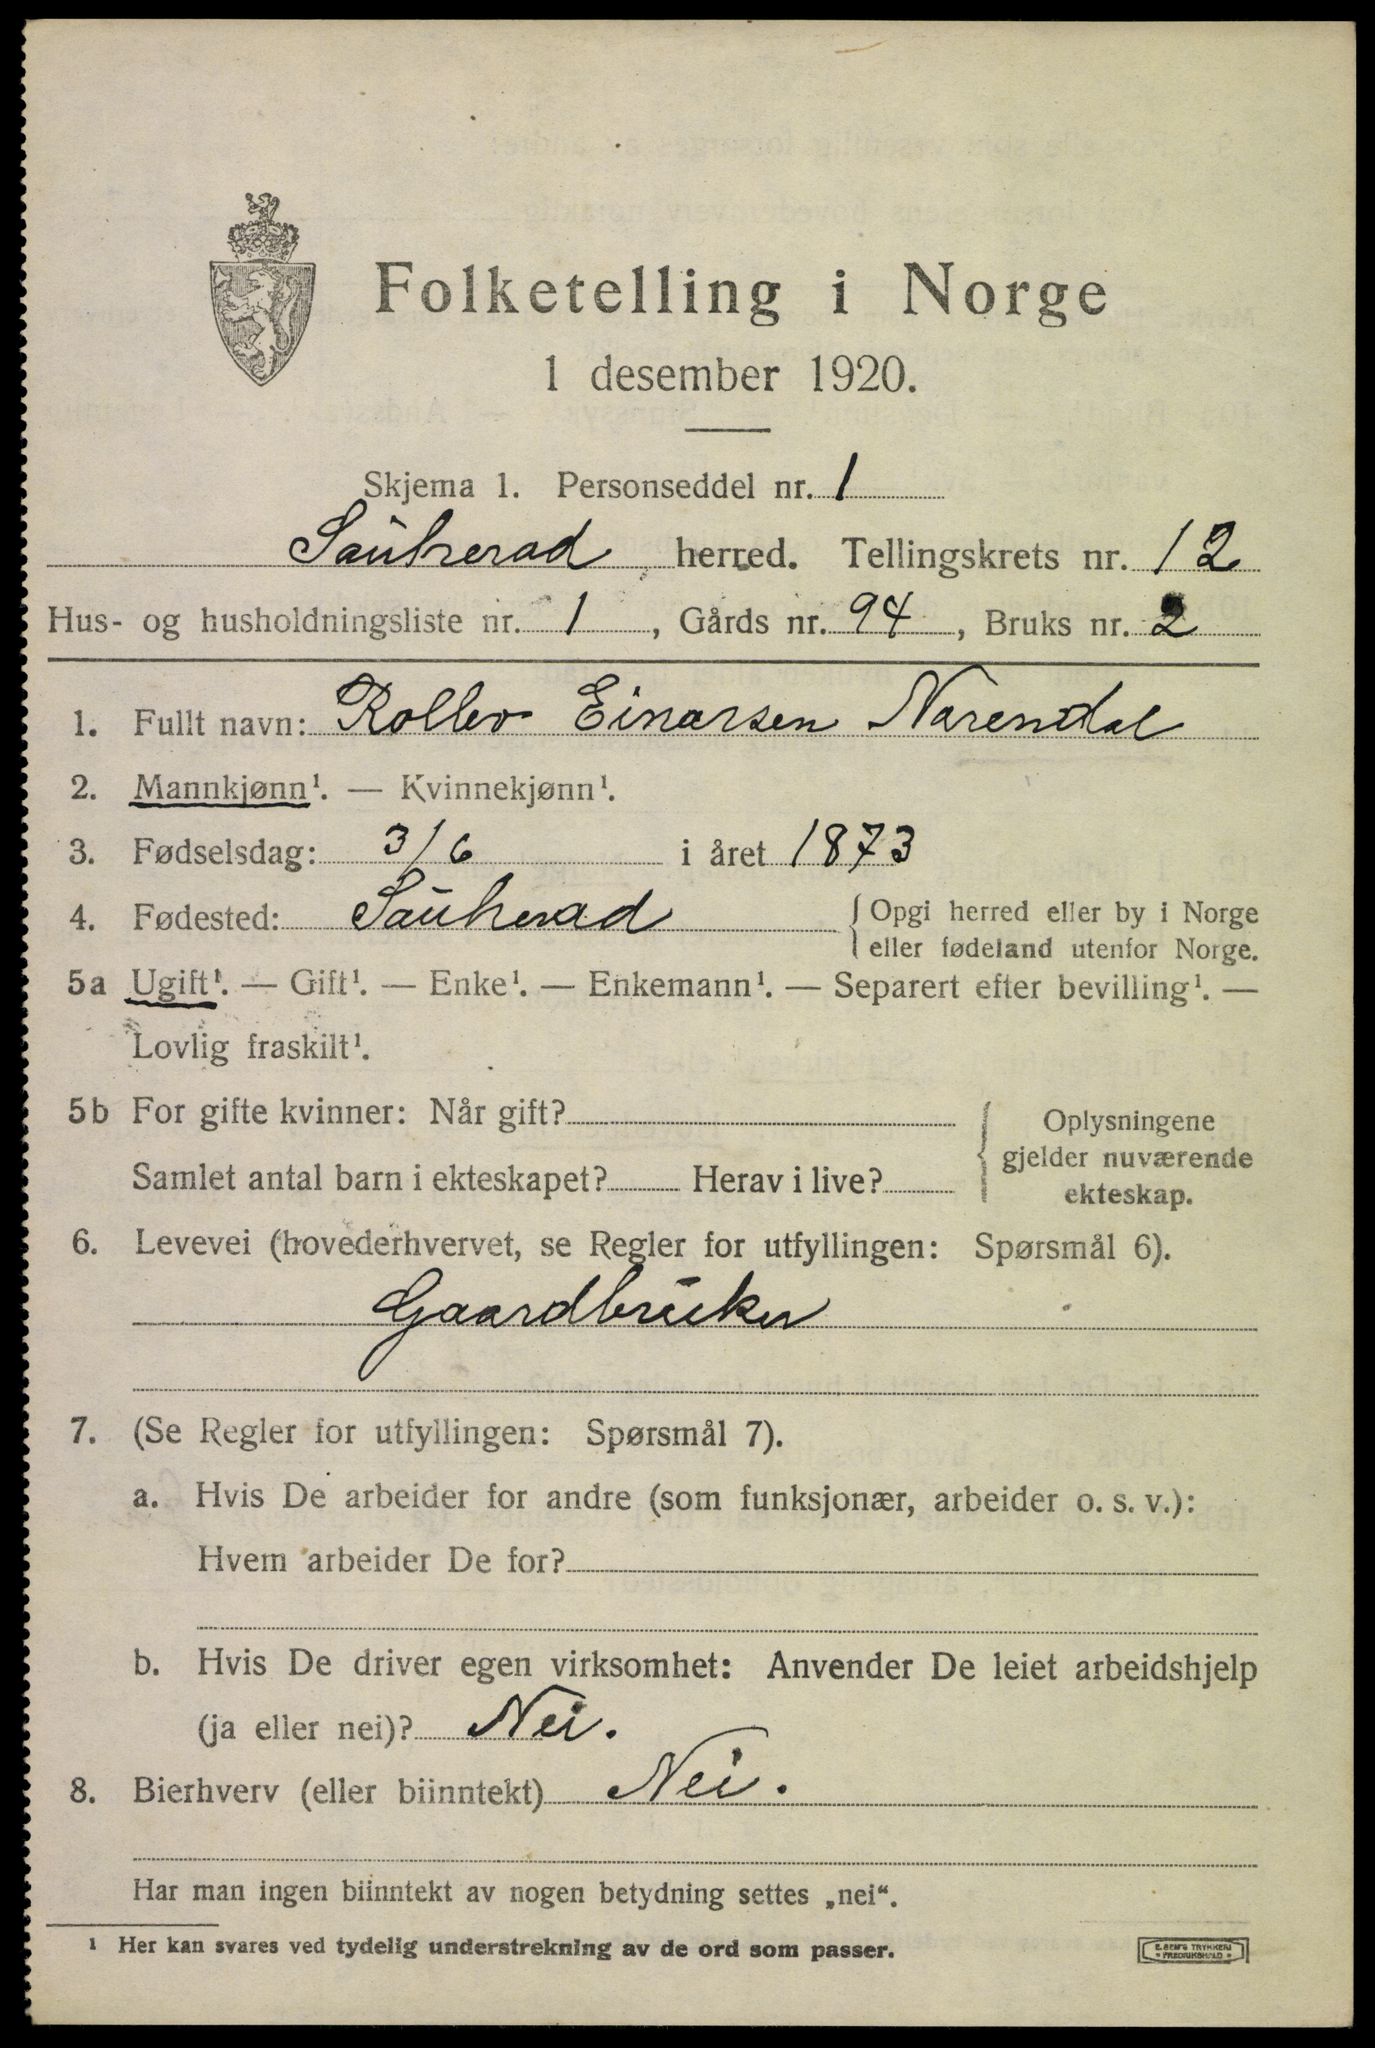 Folketelling i Norge
1 desember 1920.
Skjema 1. Personseddel nr. 1
Sauherad herred. Tellingskrets nr. 12
Hus- og husholdningsliste nr. 1, Gårds nr. 94, Bruks nr. 2
1. Fullt navn: Rollev Einarsen Narendal
2. Mannkjønn¹. — Kvinnekjønn¹.
3. Fødselsdag: 3/6 i året 1873
4. Fødested: Sauherad { Opgi herred eller by i Norge
eller fødeland utenfor Norge.
5a Ugift¹. — Gift¹. — Enke¹. — Enkemann¹. — Separert efter bevilling¹. —
Lovlig fraskilt¹.
5b For gifte kvinner: Når gift?
Samlet antal barn i ekteskapet? Herav i live?
Oplysningene
gjelder nuværende
ekteskap.
6. Levevei (hovederhvervet, se Regler for utfyllingen: Spørsmål 6).
Gaardbruker
7. (Se Regler for utfyllingen: Spørsmål 7).
a. Hvis De arbeider for andre (som funksjonær, arbeider o. s. v.):
Hvem arbeider De for?
b. Hvis De driver egen virksomhet: Anvender De leiet arbeidshjelp
(ja eller nei)? Nei.
8. Bierhverv (eller biinntekt) Nei.
Har man ingen biinntekt av nogen betydning settes „nei“.
¹ Her kan svares ved tydelig understrekning av de ord som passer.
E. SEM'S TRYKKERI
FREDRIKSHALD